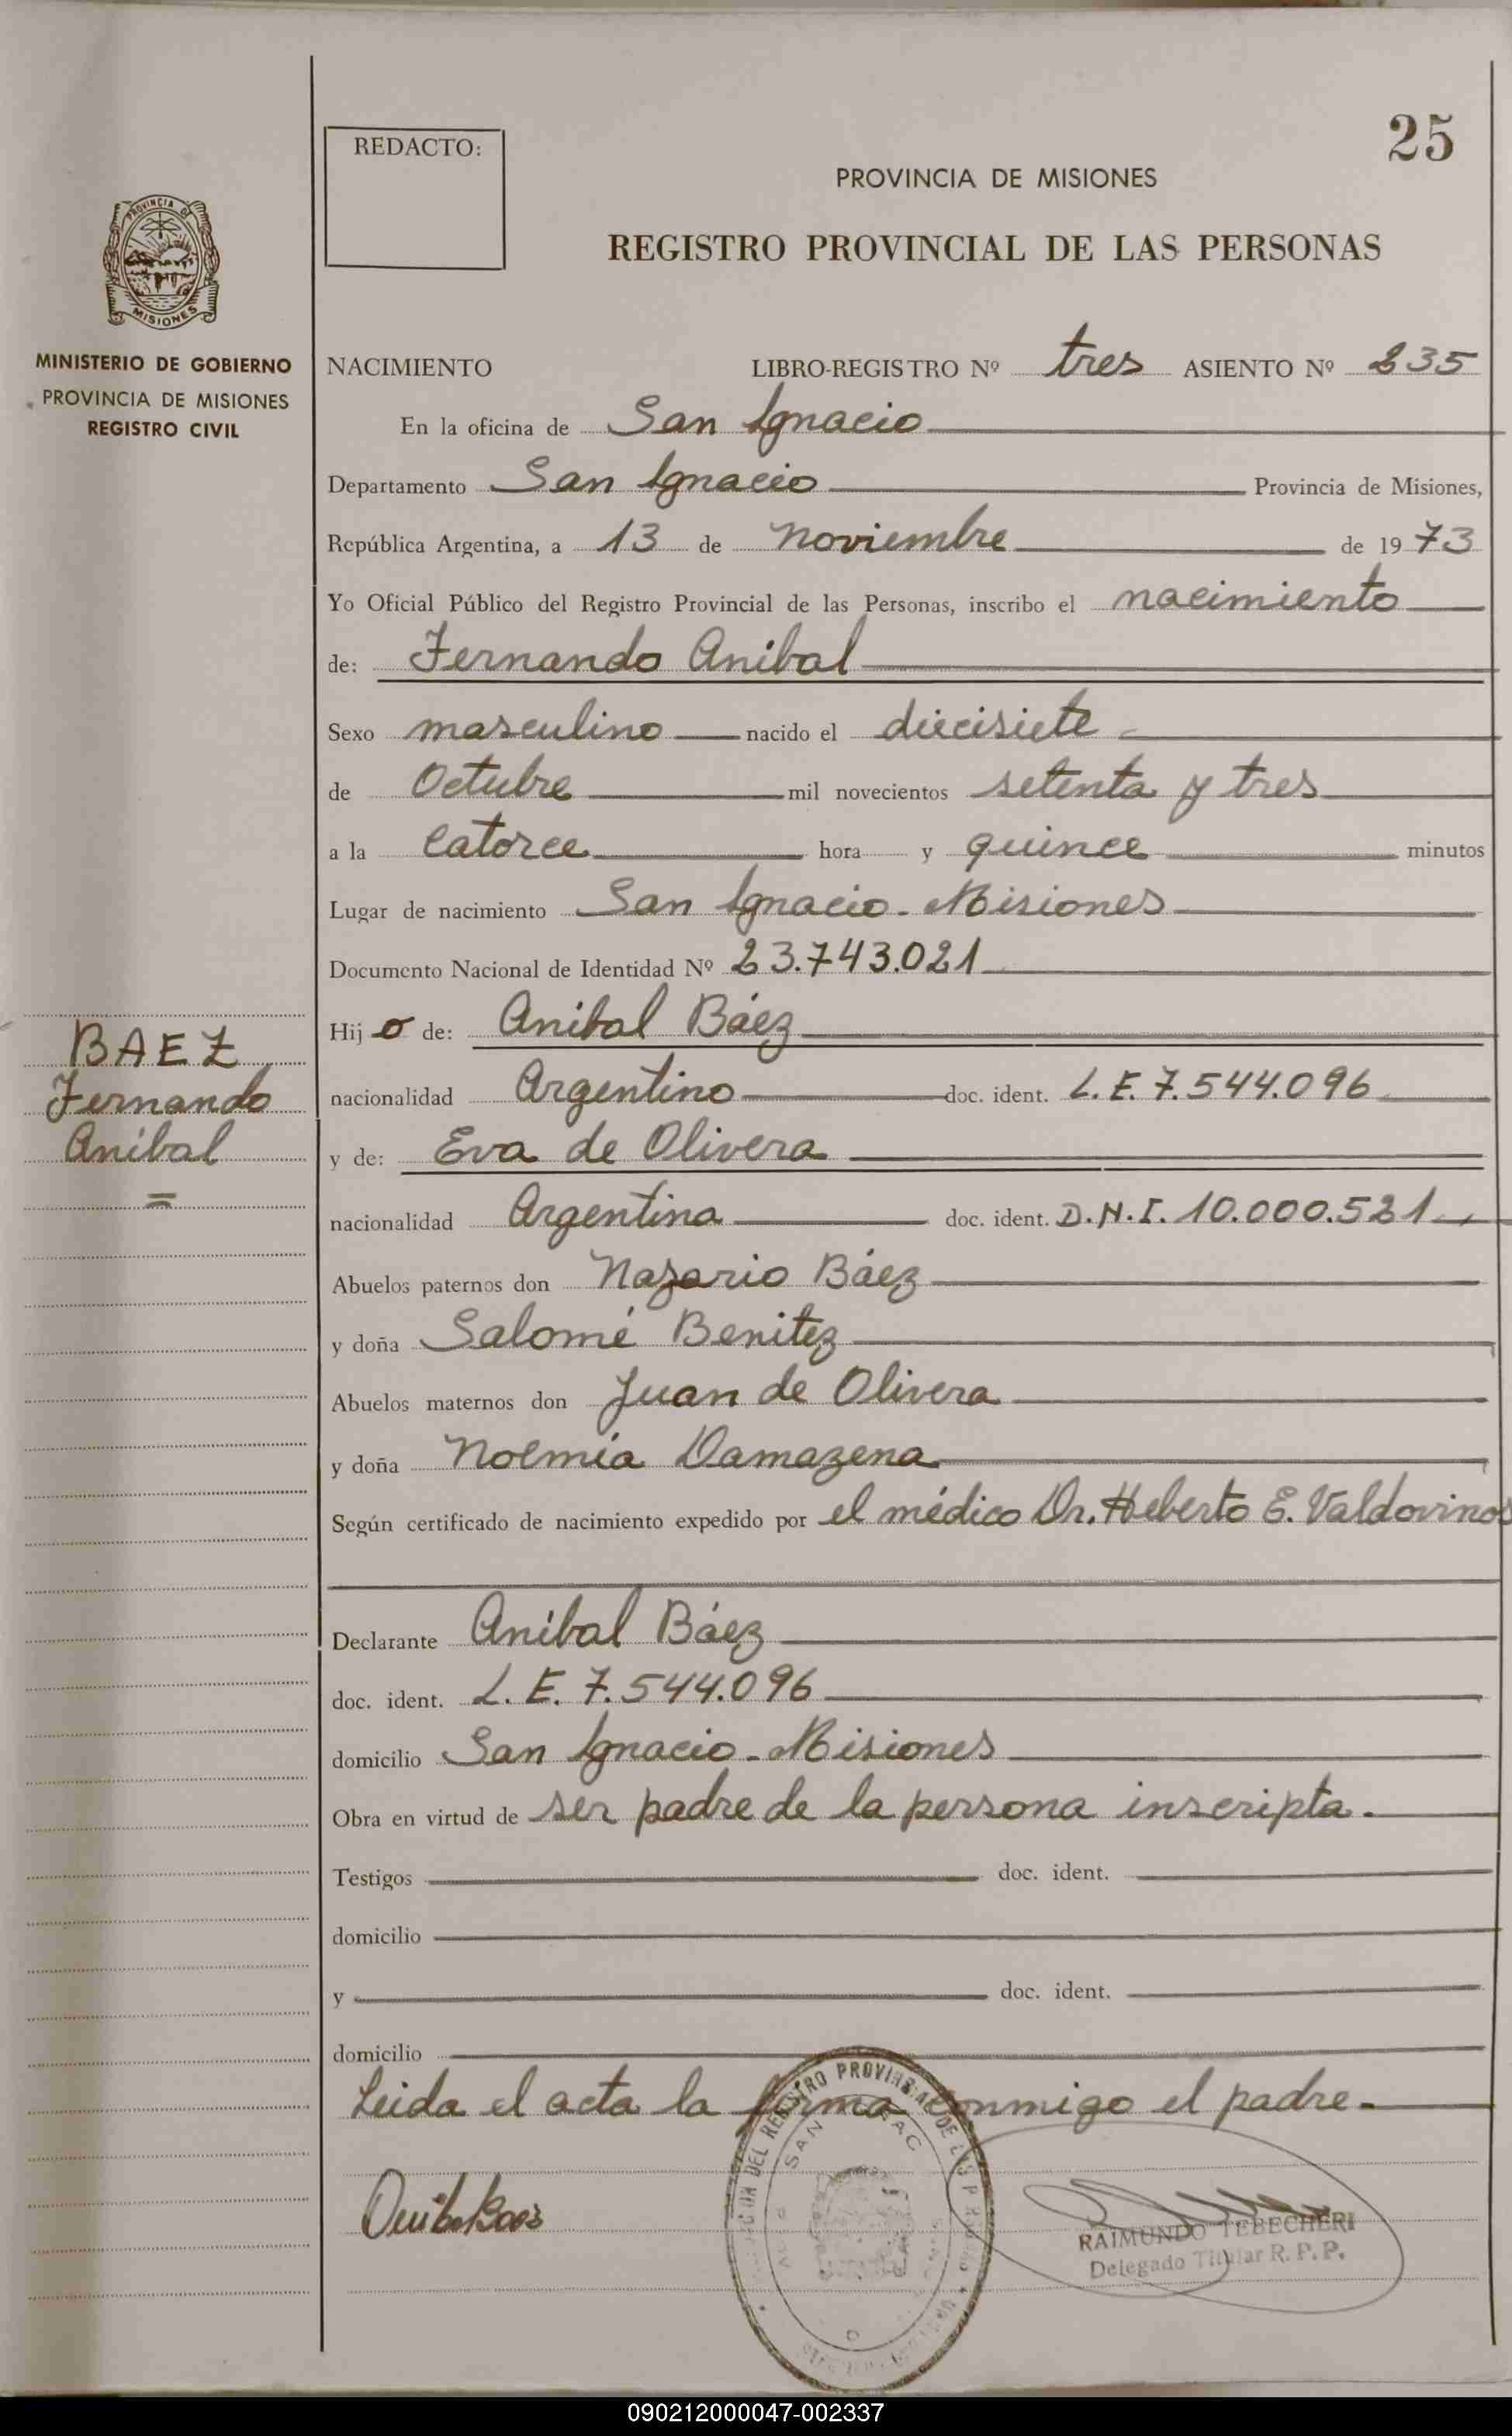 25
REDACTO:
PROVINCIA DE MISIONES
REGISTRO PROVINCIAL DE LAS PERSONAS
PROVINCIA DE
MISIONES
MINISTERIO DE GOBIERNO
PROVINCIA DE MISIONES
REGISTRO CIVIL
NACIMIENTO LIBRO-REGISTRO Nº tres ASIENTO Nº 235
En la oficina de San Ignacio
Departamento San Ignacio Provincia de Misiones,
República Argentina, a 13 de noviembre de 1973
Yo Oficial Público del Registro Provincial de las Personas, inscribo el nacimiento
de: Fernando Anibal
Sexo masculino nacido el diecisiete
de Octubre mil novecientos setenta y tres
a la catorce hora y quince minutos
Lugar de nacimiento San Ignacio - Misiones
Documento Nacional de Identidad Nº 23.743.021
Hijo de: Anibal Báez
BAEZ
Fernando
Anibal
nacionalidad Argentino doc. ident. L.E. 7.544.096
y de: Eva de Olivera
nacionalidad Argentina doc. ident. D.N.I. 10.000.521
Abuelos paternos don Nazario Báez
y doña Salomé Benitez
Abuelos maternos don Juan de Olivera
y doña Noemia Damazena
Según certificado de nacimiento expedido por el médico Dr. Heberto E. Valdovinos
Declarante Anibal Báez
doc. ident. L.E. 7.544.096
domicilio San Ignacio - Misiones
Obra en virtud de ser padre de la persona inscripta.
Testigos doc. ident.
domicilio
y doc. ident.
domicilio
Leida el acta la firma conmigo el padre.
RAIMUNDO TEBECHERI
Delegado Titular R. P. P.
090212000047-002337